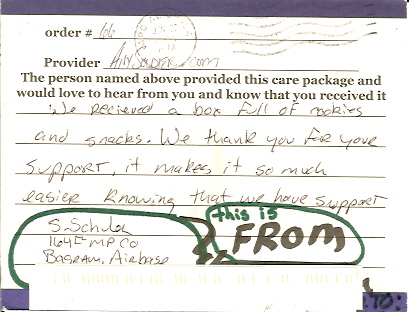 order # 66
Provider Any Soldier.com
The person named above provided this care package and
would love to hear from you and know that you received it
We recieved a box full of cookies
and snacks. We thank you for your
support, it makes it so much
easier knowing that we have support
this is
FROM
S. Schula
164th MP CO
Bagram, Airbase
TO: